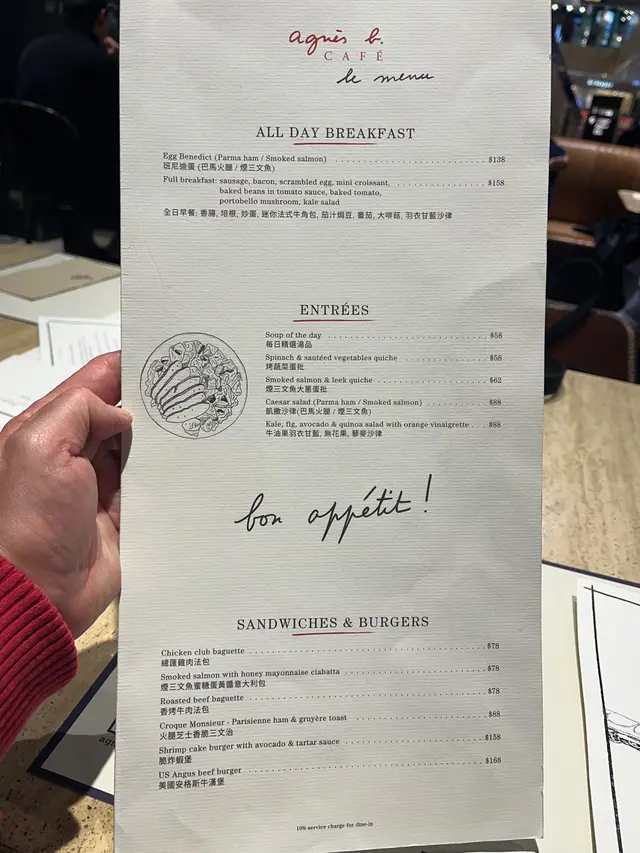 agnès b.
CAFÉ
le menu
ALL DAY BREAKFAST
Egg Benedict (Parma ham / Smoked salmon) $138
班尼迪蛋 (巴馬火腿 / 煙三文魚)
Full breakfast: sausage, bacon, scrambled egg, mini croissant, $158
baked beans in tomato sauce, baked tomato,
portobello mushroom, kale salad
全日早餐: 香腸, 培根, 炒蛋, 迷你法式牛角包, 茄汁焗豆, 番茄, 大啡菇, 羽衣甘藍沙律
ENTRÉES
Soup of the day $58
每日精選湯品
Spinach & sautéed vegetables quiche $58
烤蔬菜蛋批
Smoked salmon & leek quiche $62
煙三文魚大蔥蛋批
Caesar salad (Parma ham / Smoked salmon) $88
凱撒沙律(巴馬火腿 / 煙三文魚)
Kale, fig, avocado & quinoa salad with orange vinaigrette $88
牛油果羽衣甘藍, 無花果, 藜麥沙律
bon appétit !
SANDWICHES & BURGERS
Chicken club baguette $78
總匯雞肉法包
Smoked salmon with honey mayonnaise ciabatta $78
煙三文魚蜜糖蛋黃醬意大利包
Roasted beef baguette $78
香烤牛肉法包
Croque Monsieur - Parisienne ham & gruyère toast $88
火腿芝士香脆三文治
Shrimp cake burger with avocado & tartar sauce $158
脆炸蝦堡
US Angus beef burger $168
美國安格斯牛漢堡
10% service charge for dine-in